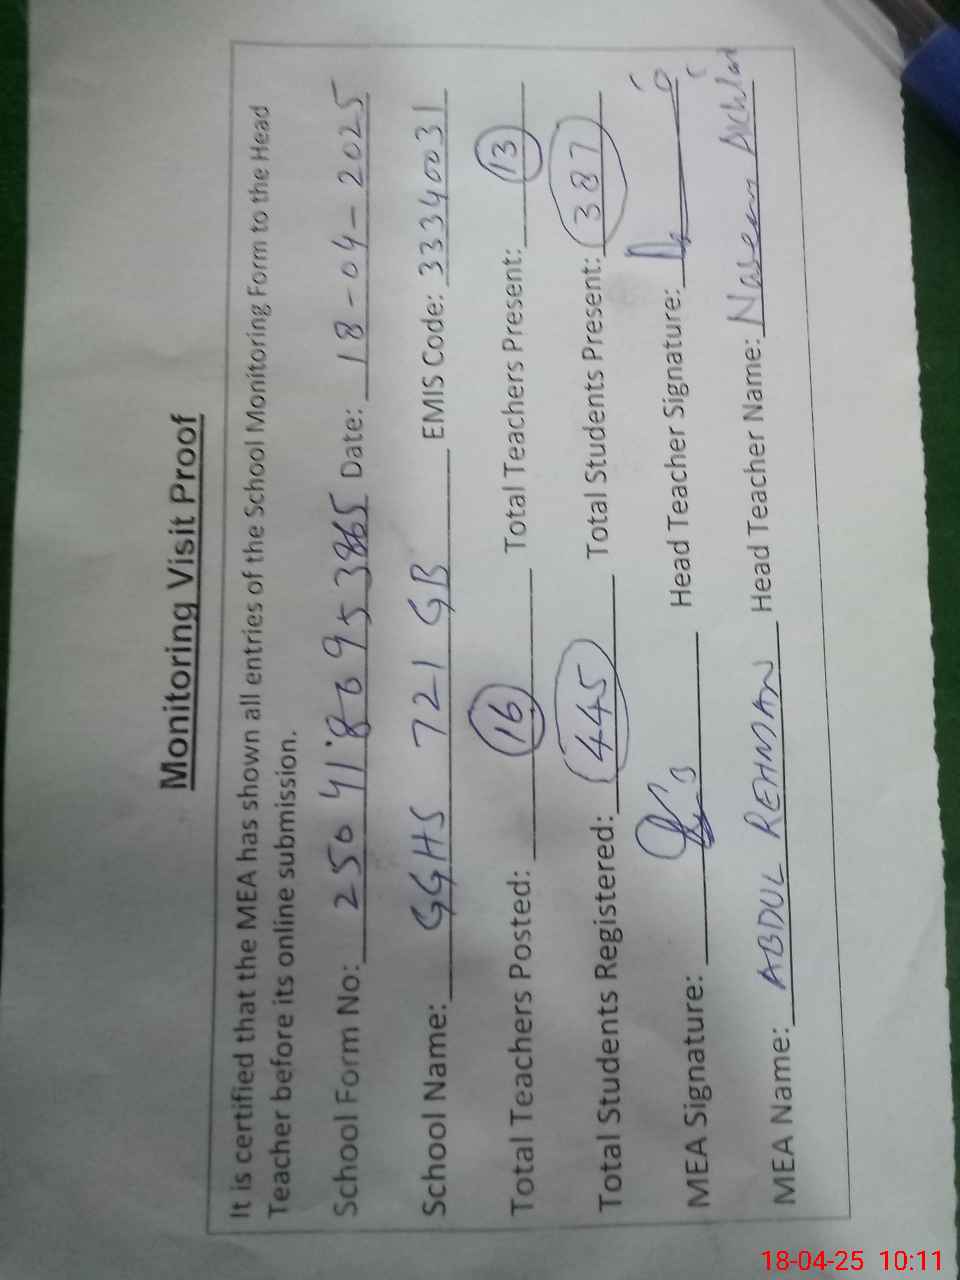 Monitoring Visit Proof
It is certified that the MEA has shown all entries of the School Monitoring Form to the Head
Teacher before its online submission.
School Form No: 250418095 3865 Date: 18-04-2025
School Name: GGHS 721 GB EMIS Code: 33340031
Total Teachers Posted: 16 Total Teachers Present: 13
Total Students Registered: 445 Total Students Present: 387
MEA Signature: Head Teacher Signature:
MEA Name: ABDUL REHMAN Head Teacher Name: Naseem
18-04-25 10:11